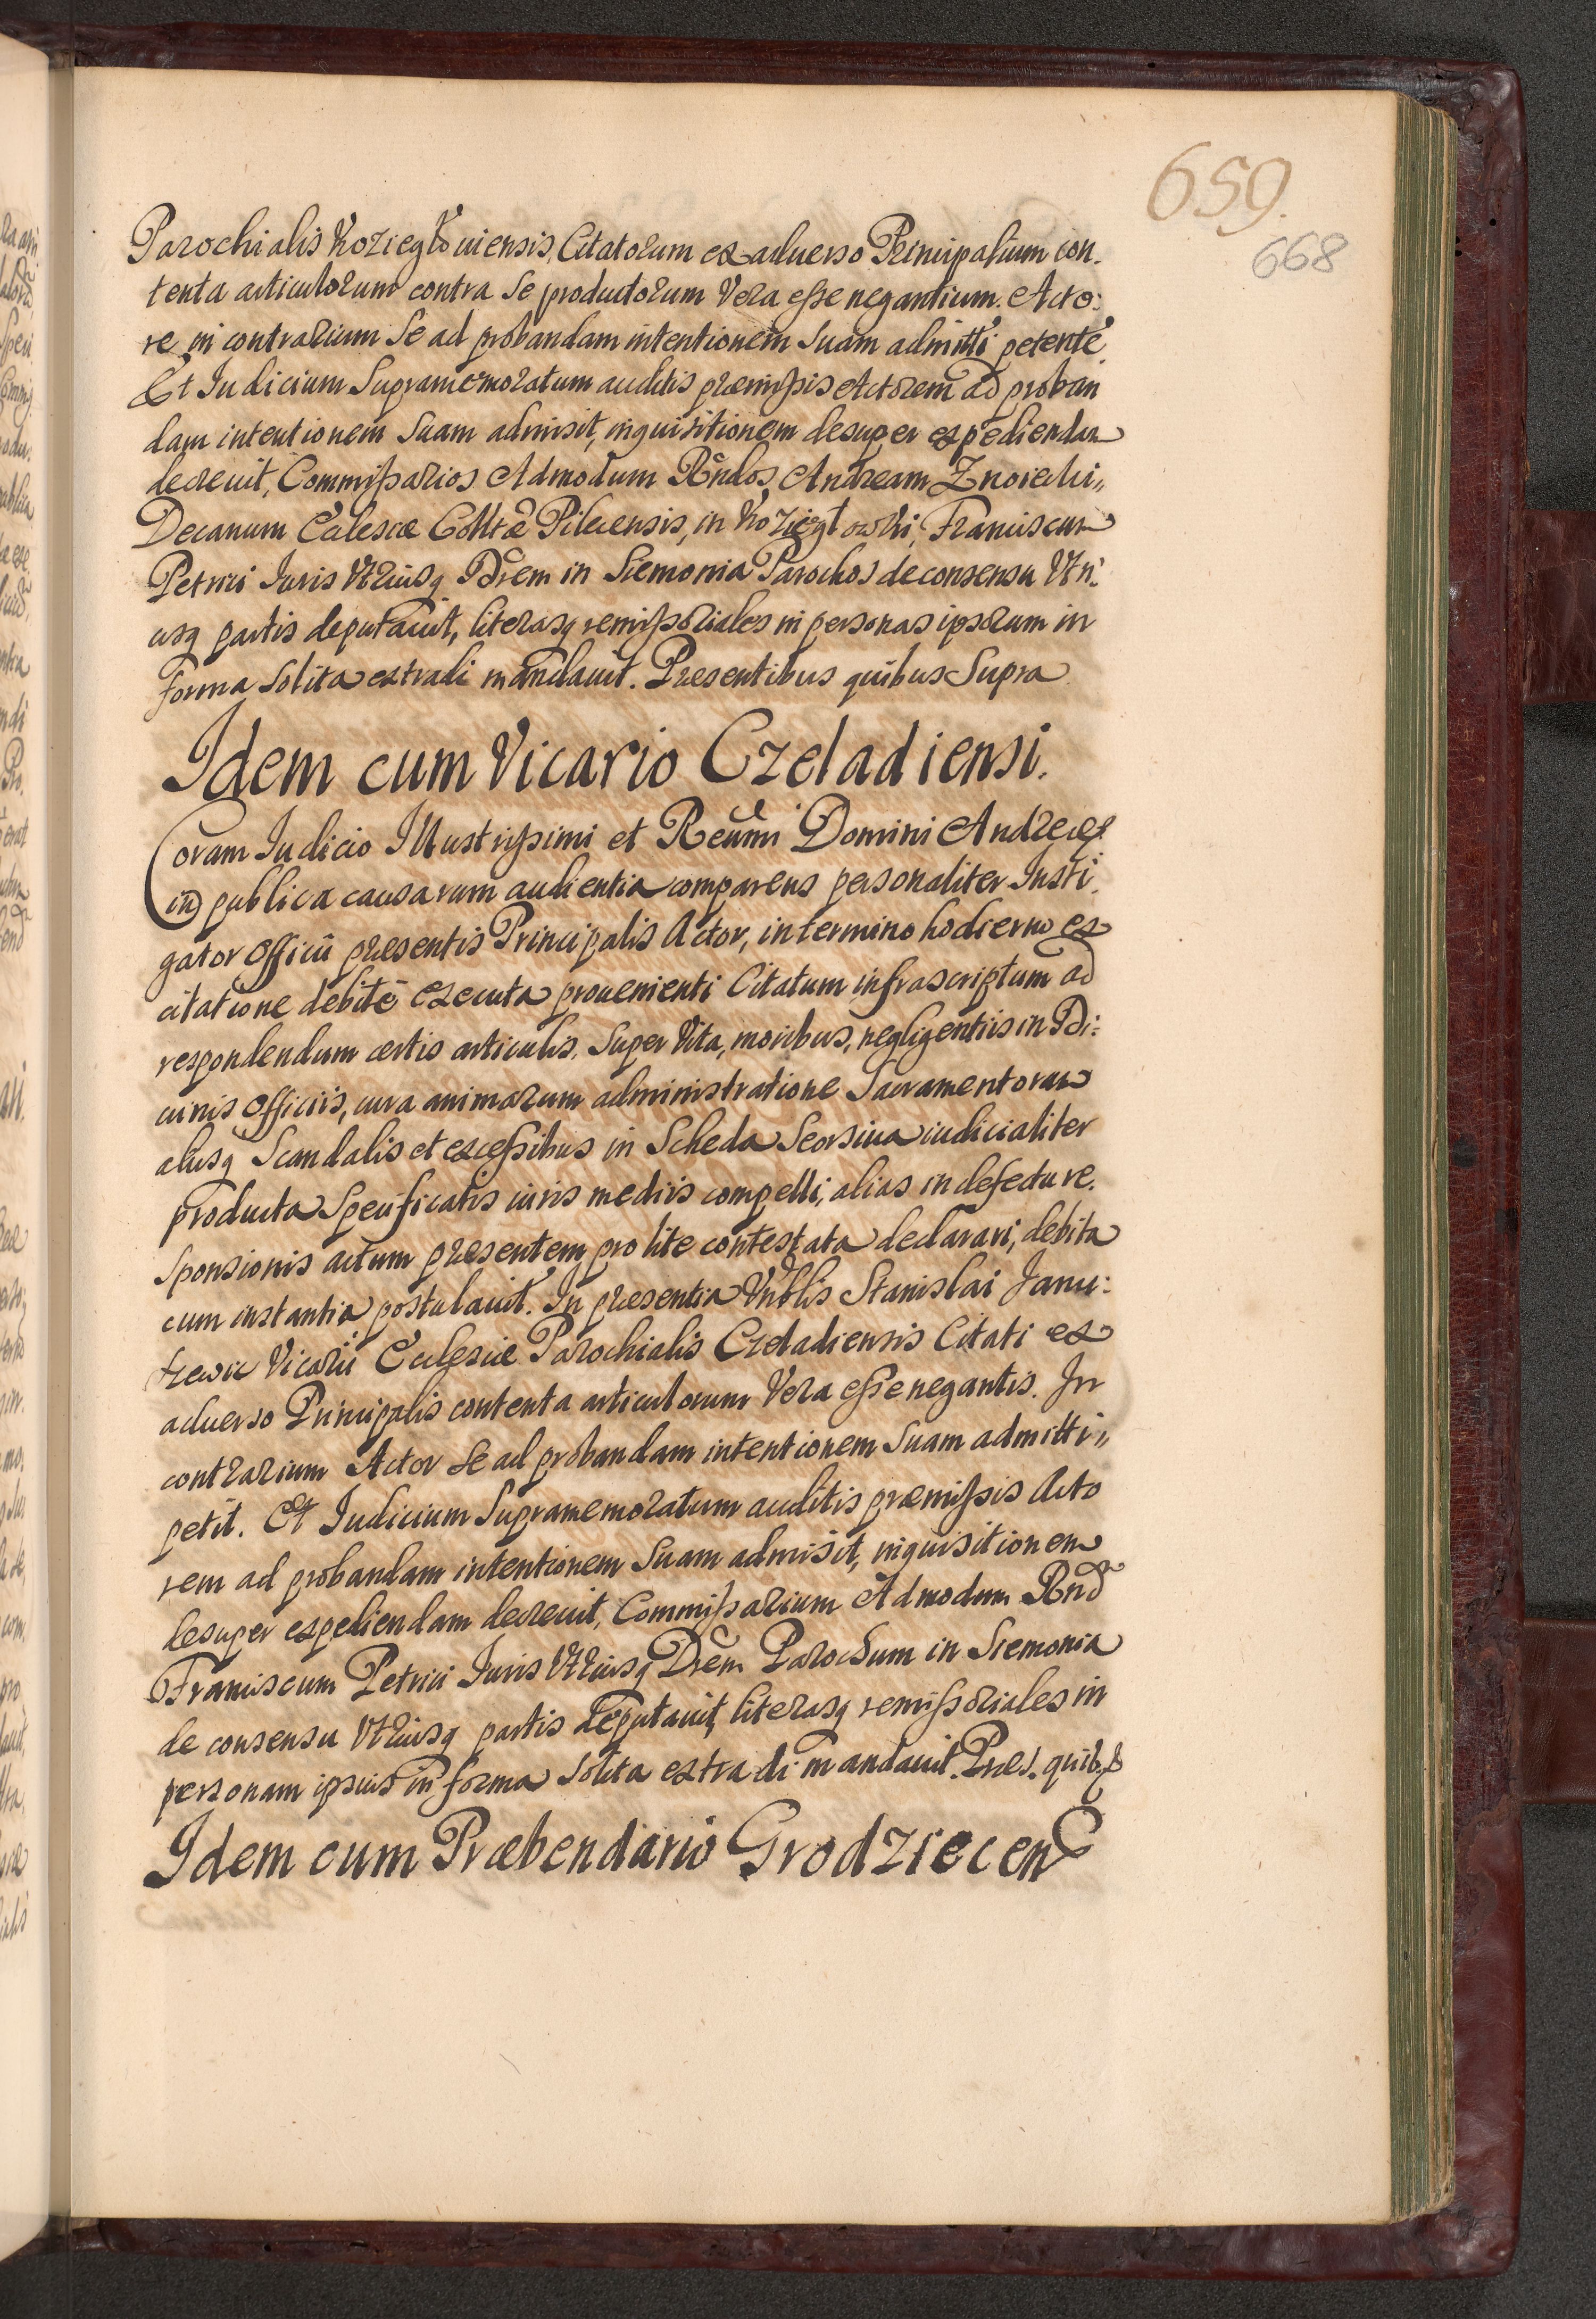 659.
668
Parochialis Koziegłoviensis, Citatorum ex aduerso Principalium con.
tenta articulorum contra Se productorum Vera esse negantium. Acto:
re in contrarium Se ad probandam intentionem Suam admitti petente.
Et Iudicium Supramemoratum auditis præmissis Actorem ad proban
dam intentionem Suam admisit, inquisitionem desuper expediendam
decreuit, Commissarios Admodum Rndos Andream
Decanum Ecclesiæ Colltæ Pilecensis, in Koziegłowki, Franciscum
Petrici Iuris Vtriusq Drem in Siemonia Parochos de consensu Vtri:
usq partis deputauit, literasq remissoriales in personas ipsorum in
forma Solita extradi mandauit. Præsentibus quibus Supra
Idem cum Vicario Czeladiensi.
Coram Iudicio Illustrissimi et Reūmi Domini Andreæ
in publica causarum audientia comparens personaliter Insti.
gator Officii præsentis Principalis Actor, in termino hodierno ex
citatione debitè executa prouenienti Citatum infrascriptum ad
respondendum certis articulis, Super Vita, moribus, negligentiis in Di:
uinis Officiis, cura animarum administratione Sacramentorum
aliisq Scandalis et excessibus in Scheda Seorsiua iudicialiter
producta Specificatis iuris mediis compelli, alias in defectu re.
sponsionis actum præsentem pro lite contestata declarari, debita
cum instantia postulauit. In præsentia Vnblis Stanislai Janu:
Vicarii Ecclesiæ Parochialis Czeladiensis Citati ex
aduerso Principalis contenta articulorum Vera esse negantis. In
contrarium Actor Se ad probandam intentionem Suam admitti,,
petit. Et Iudicium Supramemoratum auditis præmissis Acto
rem ad probandam intentionem Suam admisit, inquisitionem
desuper expediendam decreuit, Commissarium Admodum Rnd
Franciscum Petrici Iuris Vtriusq Drem Parochum in Siemonia
de consensu Vtriusq partis deputauit, literasq remissoriales in
personam ipsius in forma Solita extradi mandauit. Præs. quib. S
Idem cum Præbendario Grodziecen